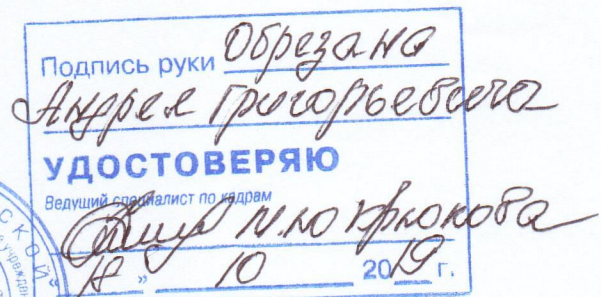 Подпись руки Обрезана
Андрея Григорьевича
УДОСТОВЕРЯЮ
Ведущий специалист по кадрам
М.Ю Крюкова
"18" 10 2019 г.
СКОЙ